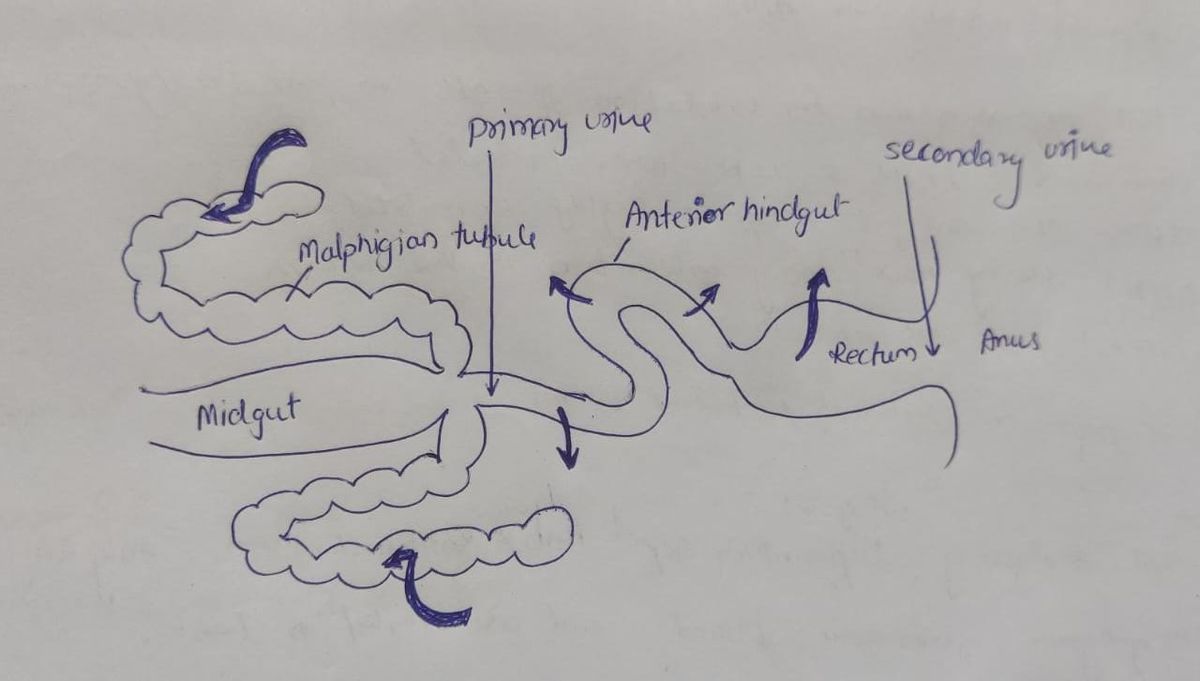 primary urine
secondary urine
Anterior hindgut
Malphigian tubule
Rectum
Anus
Midgut